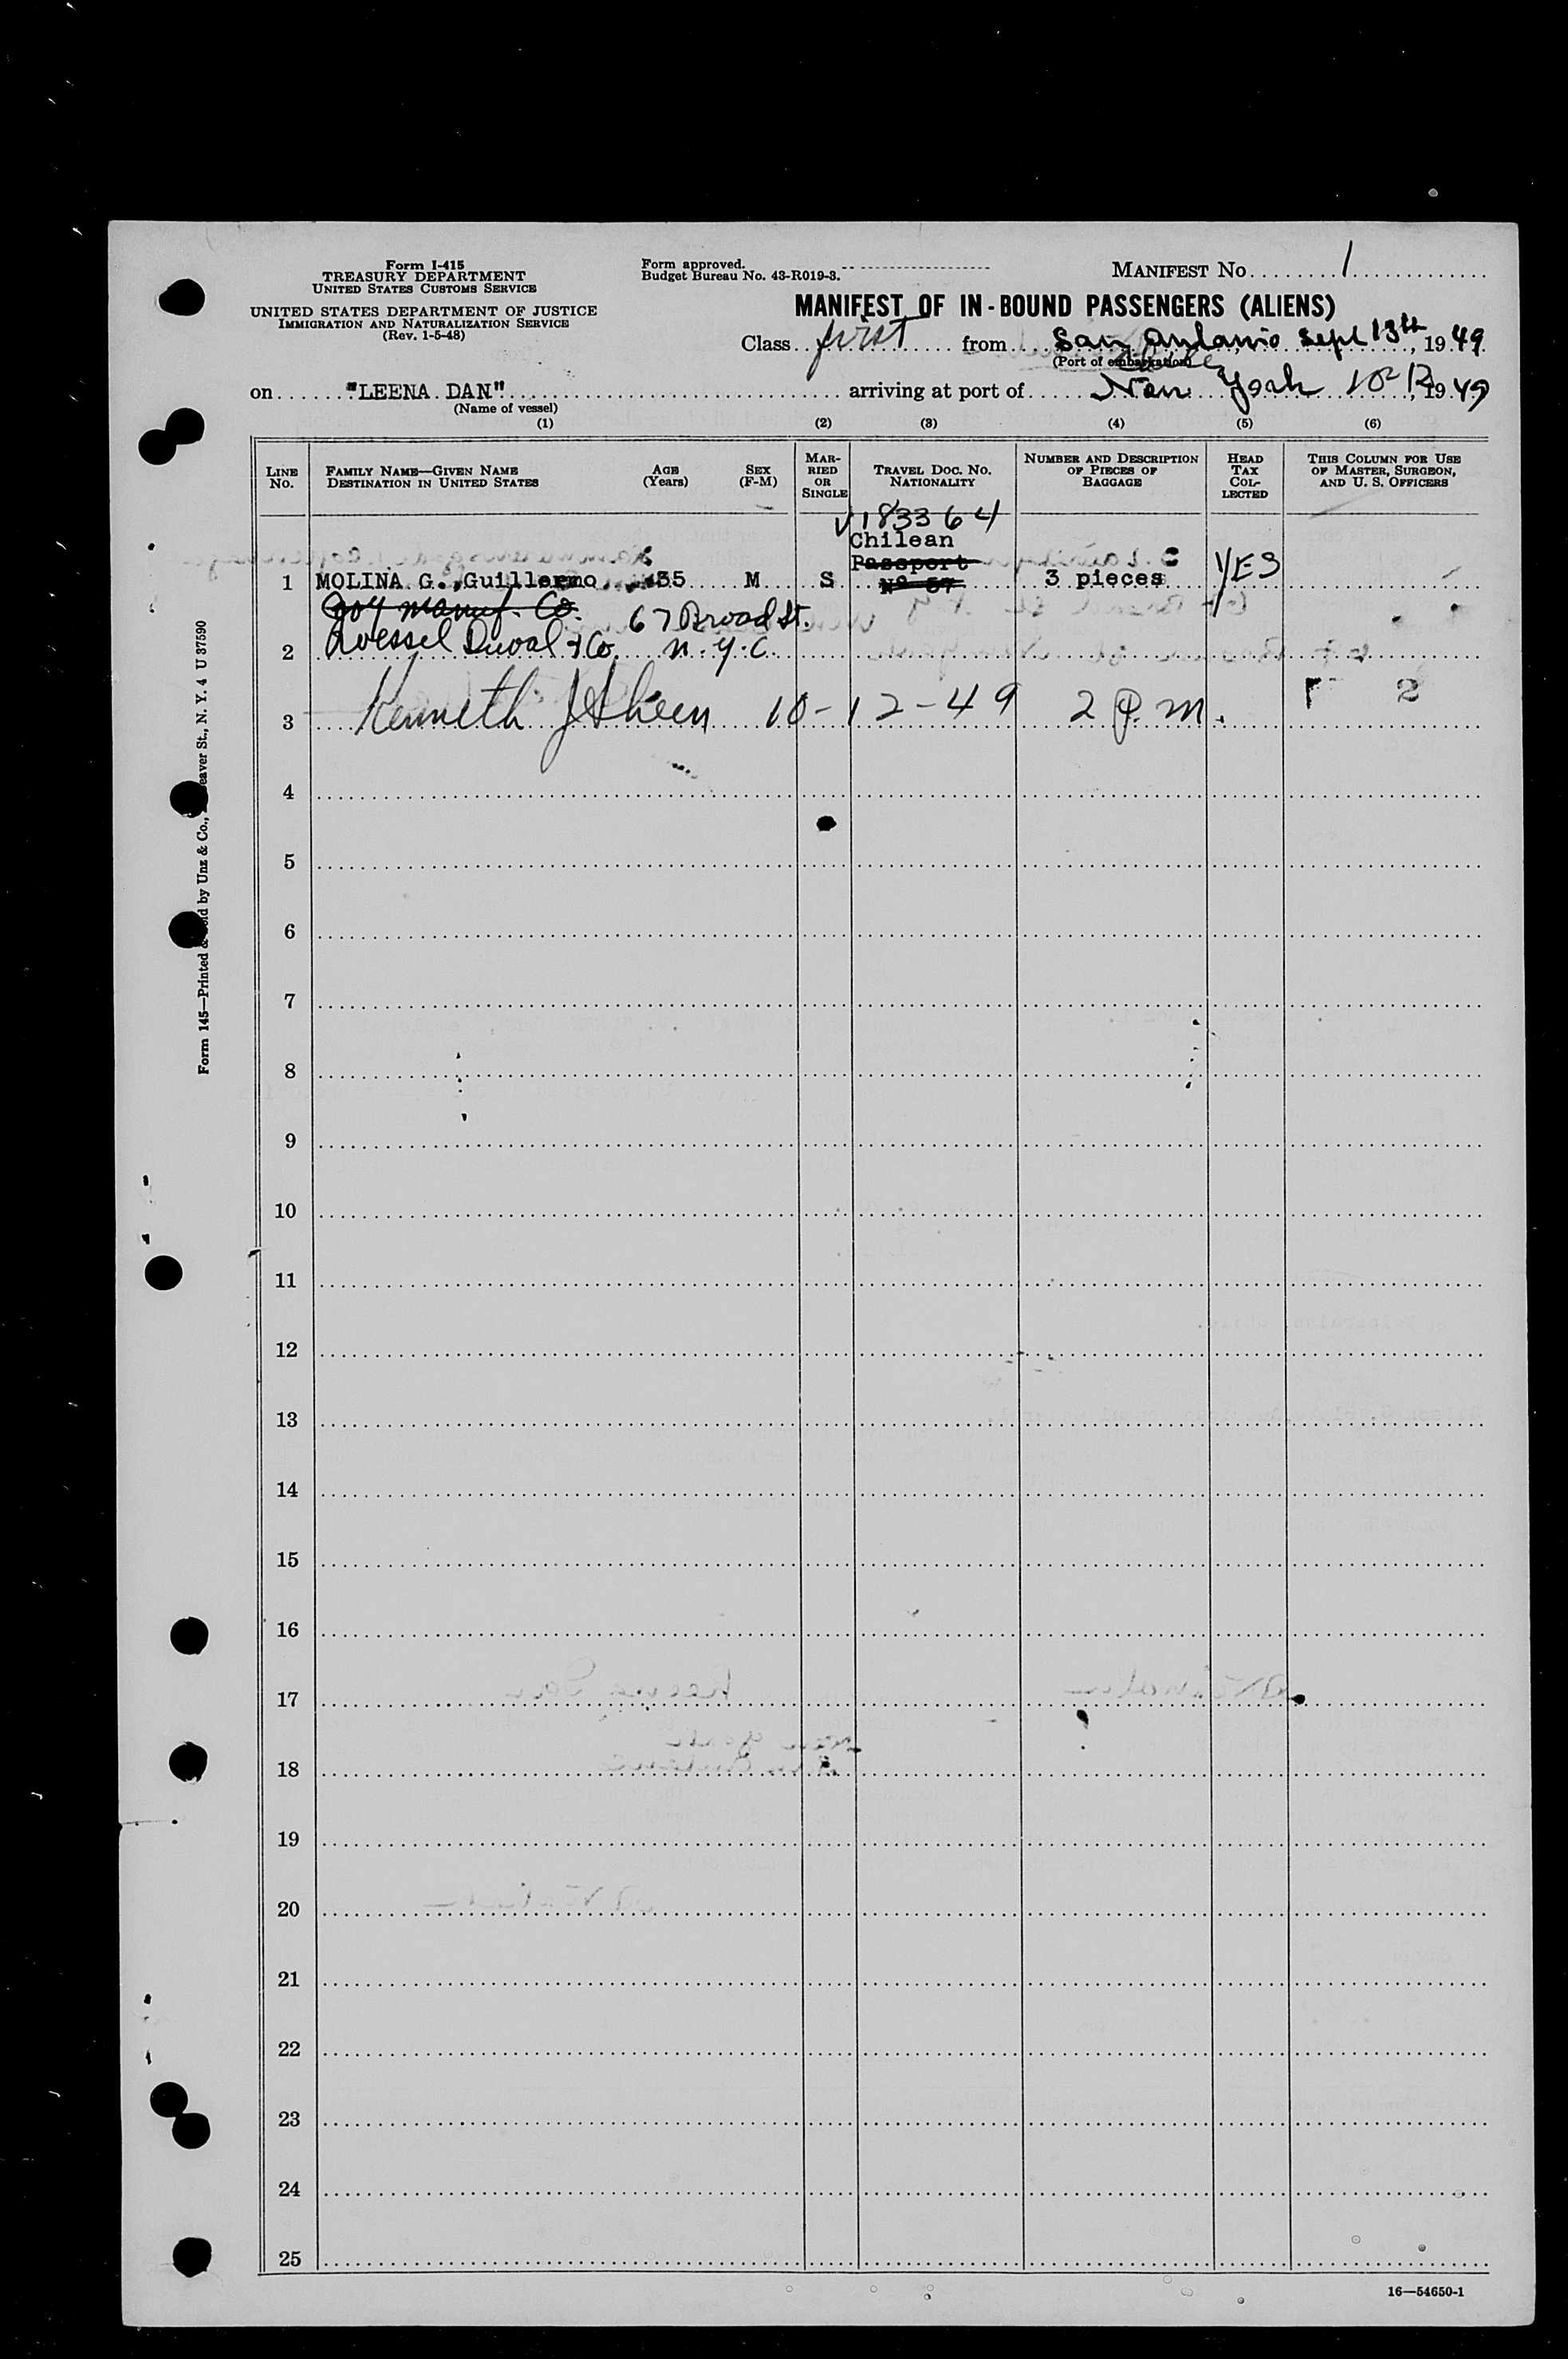 Form I-415
TREASURY DEPARTMENT
UNITED STATES CUSTOMS SERVICE
UNITED STATES DEPARTMENT OF JUSTICE
IMMIGRATION AND NATURALIZATION SERVICE
(Rev. 1-5-48)
Form approved.
Budget Bureau No. 43-R019-3.
MANIFEST No. 1
MANIFEST OF IN-BOUND PASSENGERS (ALIENS)
Class first from San Antonio Sept 13th, 1949
(Port of embarkation) Chile
on "LEENA DAN" arriving at port of New York 10-12, 1949
(Name of vessel)
(1) (2) (3) (4) (5) (6)
LINE No.
FAMILY NAME—GIVEN NAME
DESTINATION IN UNITED STATES
AGE (Years)
SEX (F-M)
MARRIED OR SINGLE
TRAVEL DOC. NO.
NATIONALITY
NUMBER AND DESCRIPTION OF PIECES OF BAGGAGE
HEAD TAX COLLECTED
THIS COLUMN FOR USE OF MASTER, SURGEON, AND U. S. OFFICERS
V183364
Chilean
Passport
1 MOLINA G., Guillermo 35 M S Nº 57 3 pieces YES
Joy Manuf. Co.
67 Broad St.
2 Wessel Duval & Co. N.Y.C.
3 Kenneth J Sheen 10-12-49 2 P.M.
4
5
6
7
8
9
10
11
12
13
14
15
16
17
18
19
20
21
22
23
24
25
16—54650-1
Form 145—Printed & Sold by Unz & Co., Beaver St., N. Y. 4 U 37590